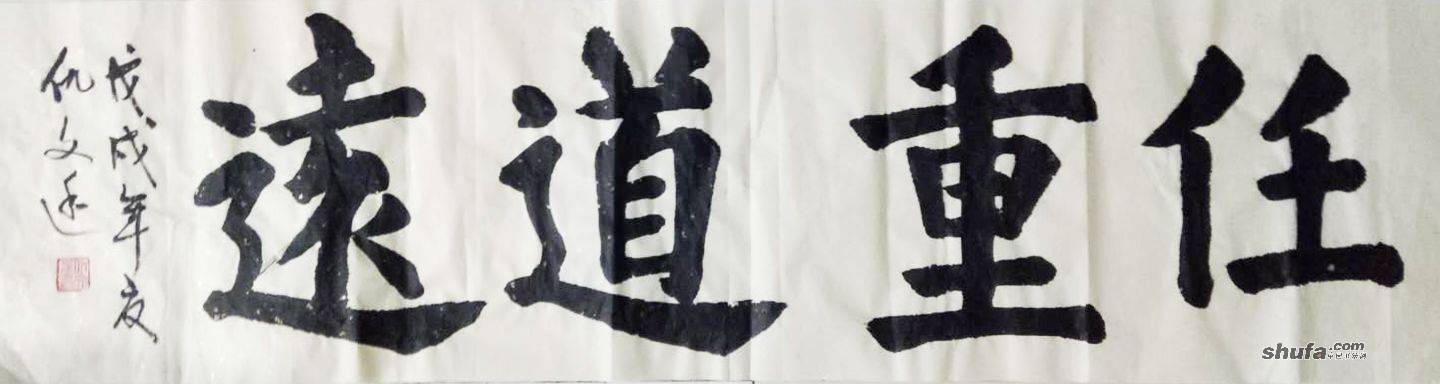 任重道遠
戊戌年夏
仇文
shufa.com